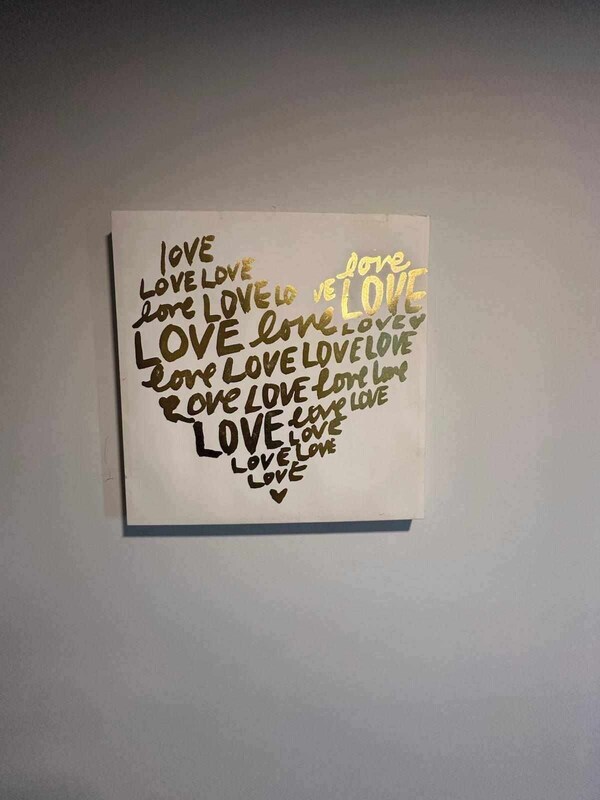 love
LOVE
LOVE LOVE
love LOVE LO VE LOVE
LOVE love LOVE
love LOVE LOVE LOVE
love LOVE love love
LOVE love LOVE
LOVE
LOVE LOVE
LOVE